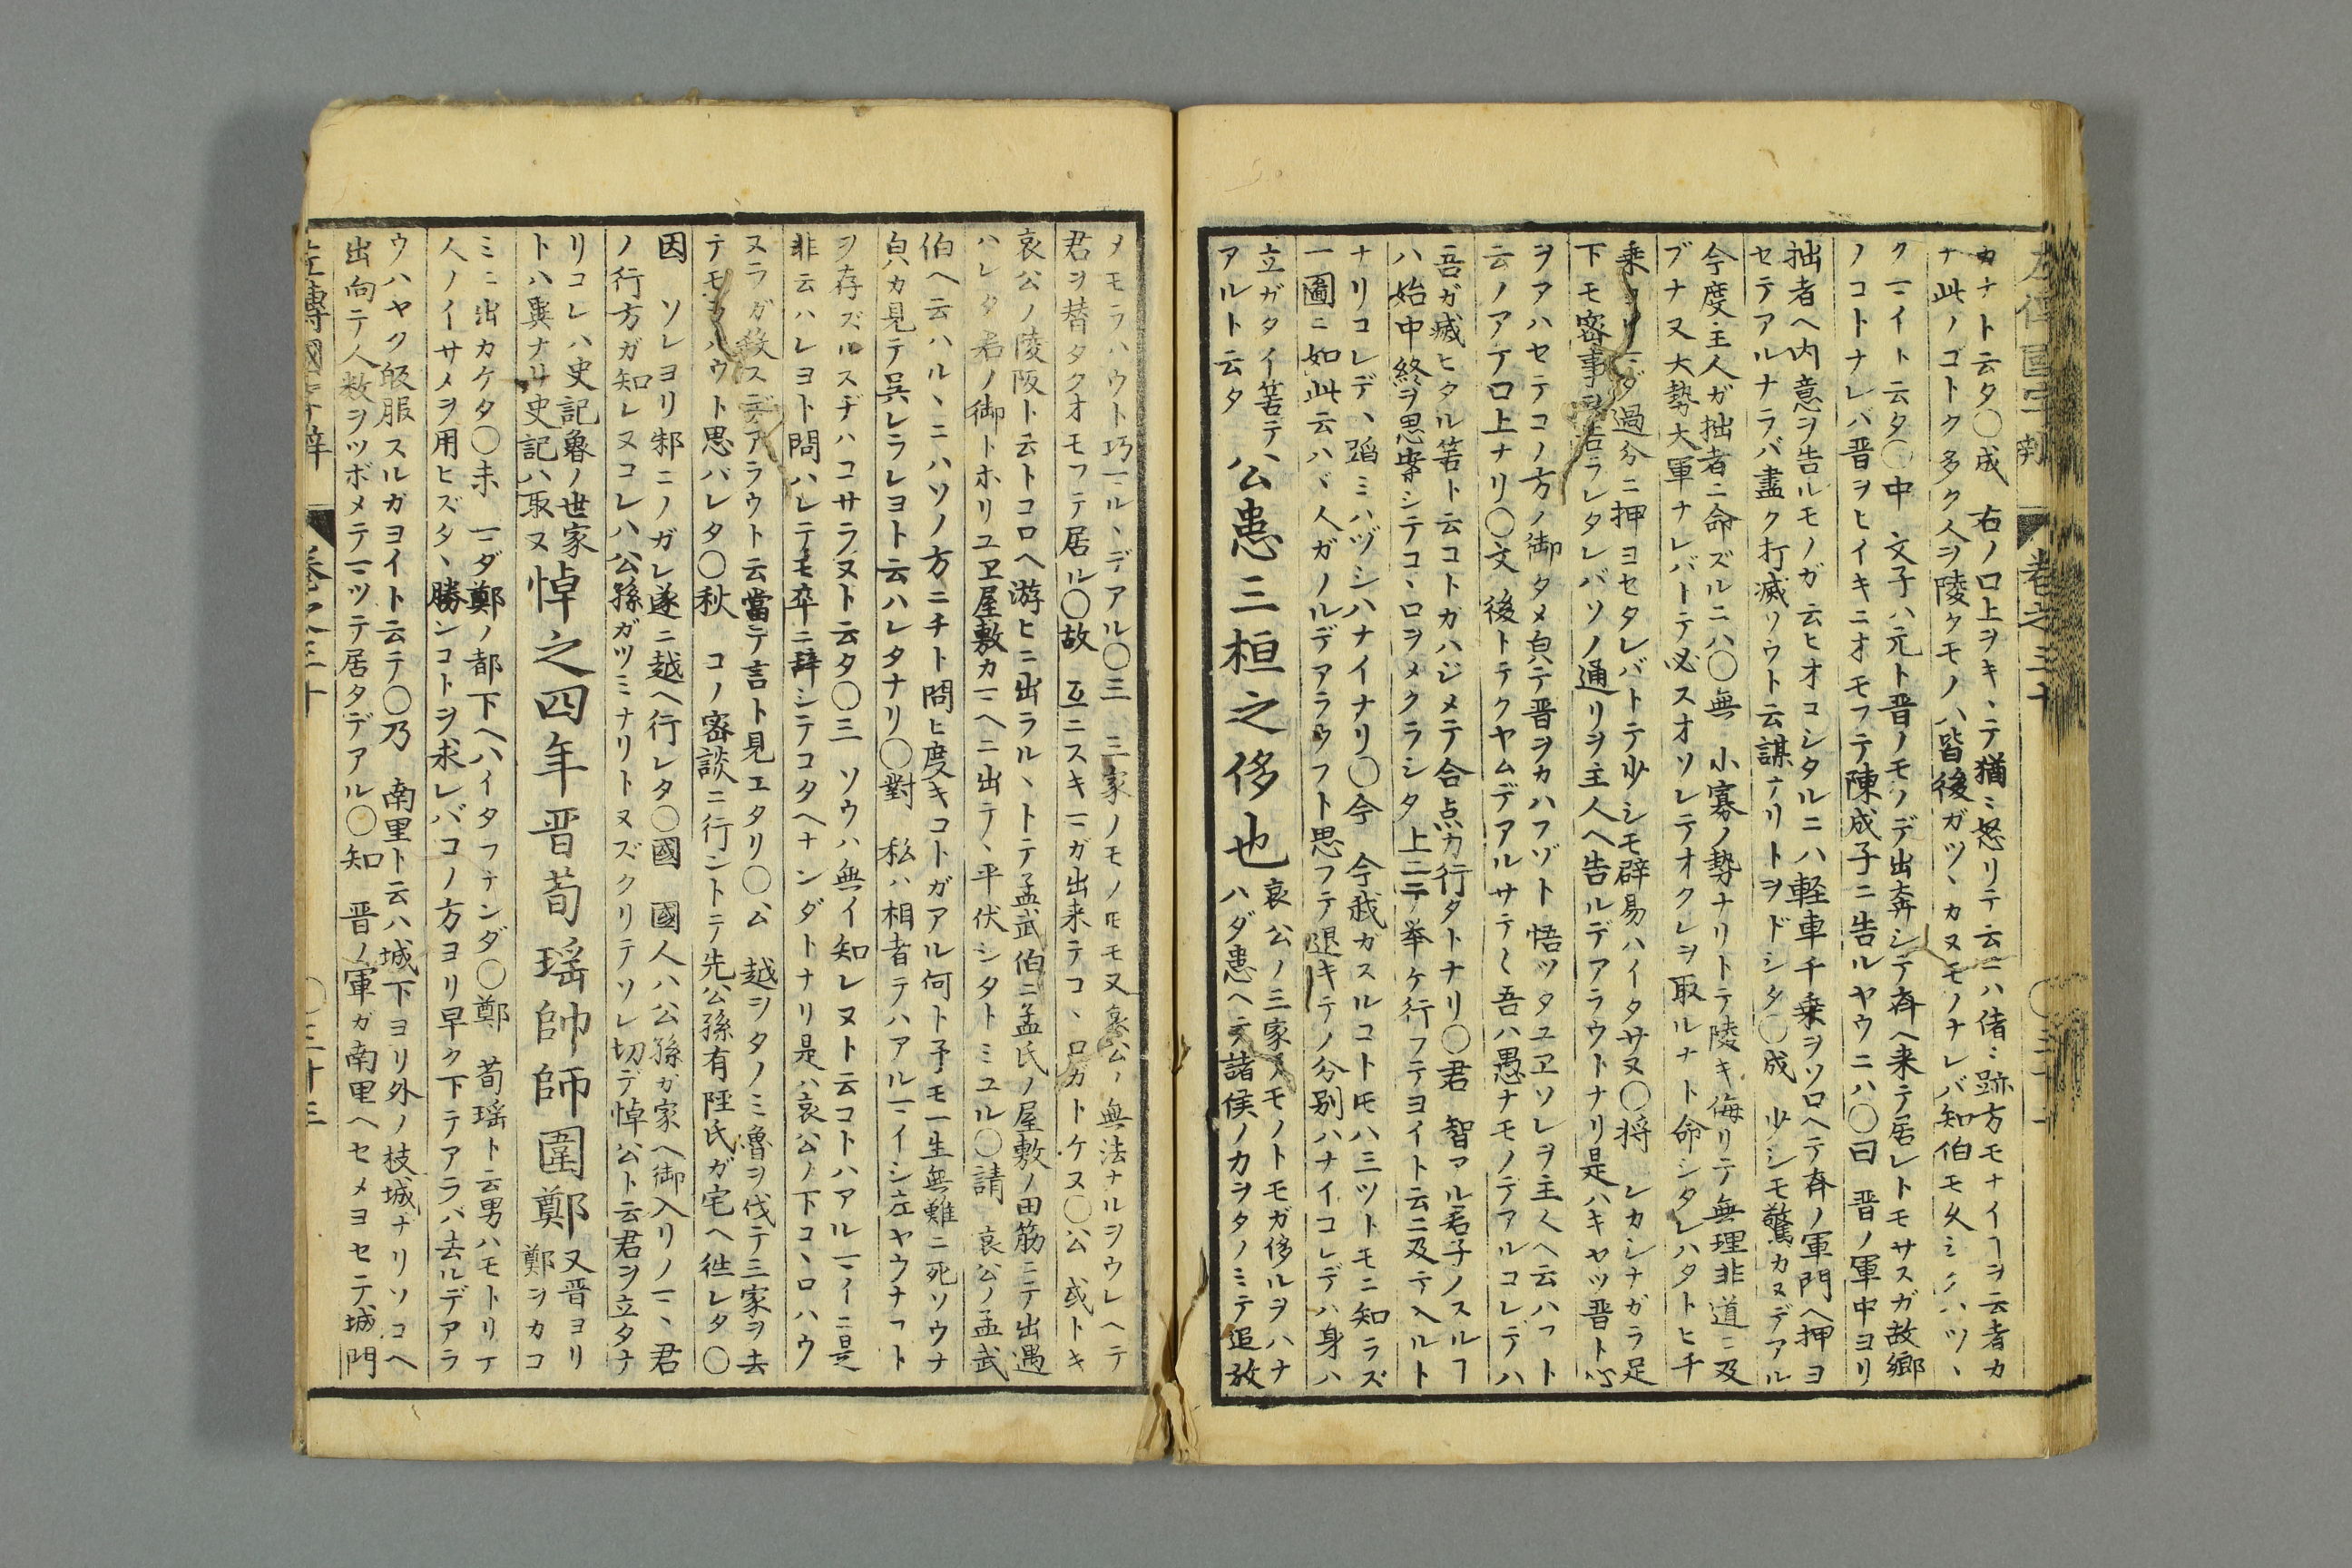 左傳國字辨 卷之三十 〇三十一
カナト云タ〇成 右ノ口上ヲキヽテ猶ミ怒リテ云ニハ偖ミ跡方モナイヿヲ云者カ
ナ此ノゴトク多ク人ヲ陵クモノハ皆後ガツヽカヌモノナレバ知伯モ久シクハツヽ
クマイト云タ〇中 文子ハ元ト晋ノモノデ出奔シテ斉ヘ来テ居レトモサスガ故郷
ノコトナレバ晋ヲヒイキニオモフテ陳成子ニ告ルヤウニハ〇曰 晋ノ軍中ヨリ
拙者ヘ内意ヲ告ルモノガ云ヒオコシタルニハ軽車千乗ヲソロヘテ斉ノ軍門ヘ押ヨ
セテアルナラバ盡ク打滅ソウト云謀ナリトヲドシタ〇成 少シモ驚カヌデアル
今度主人ガ拙者ニ命ズルニハ〇無 小寡ノ勢ナリトテ陵キ侮リテ無理非道ニ及
ブナ又大勢大軍ナレバトテ必スオソレテオクレヲ取ルナト命シタレハタトヒ千
乗ヨリマダ過分ニ押ヨセタレバトテ少シモ辟易ハイタサヌ〇将 シカシナガラ足
下モ密事ヲ告ラレタレバソノ通リヲ主人ヘ告ルデアラウトナリ是ハキヤツ晋ト心
ヲアハセテコノ方ノ御タメ㒵テ晋ヲカハフゾト悟ツタユヱソレヲ主人ヘ云ハフト
云ノアテ口上ナリ〇文 後トテクヤムデアルサテ〳〵吾ハ愚ナモノテアルコレデハ
吾ガ滅ヒタル筈ト云コトカハジメテ合点カ行タトナリ〇君 智アル君子ノスルヿ
ハ始中終ヲ思案シテコヽロヲメクラシタ上ニテ挙ケ行フテヨイト云ニ及テ入ルト
ナリコレデヽ蹈ミハヅシハナイナリ〇今 今我カスルコトㇳモハ三ツトモニ知ラズ
一圖ニ如此云ハヾ人ガノルデアラウフト思フテ退キテノ分別ハナイコレデハ身ハ
立ガタイ筈テ
アルト云タ
公患三桓之侈也
哀公ノ三家ノモノトモガ侈ルヲハナ
ハダ患ヘテ諸侯ノカヲタノミテ追放
メモラハウト巧マルヽデアル〇三 三家ノモノㇳモモ又哀公ノ無法ナルヲウレヘテ
君ヲ替タクオモフテ居ル〇故 互ニスキマガ出来テコヽロカトケヌ〇公 或トキ
哀公ノ陵阪ト云トコロヘ游ヒニ出ラルヽトテ孟武伯ニ孟氏ノ屋敷ノ田筋ニテ出遇
ハレタ君ノ御トホリユヱ屋敷カマヘニ出テヽ平伏シタトミユル〇請 哀公ノ孟武
伯ヘ云ハルヽニハソノ方ニチト問ヒ度キコトガアル何ト予モ一生無難ニ死ソウナ
㒵カ見テ呉レラレヨト云ハレタナリ〇對 私ハ相者テハアルマイシ左ヤウナフト
ヲ存ズルスヂハコサラヌト云タ〇三 ソウハ無イ知レヌト云コトハアルマイニ是
非云ハレヨト問ハレテモ卒ニ辞シテコタヘナンダトナリ是ハ哀公ノ下コヽロハウ
ヌラガ殺スデアラウト云當テ言ト見エタリ〇公 越ヲタノミ魯ヲ伐テ三家ヲ去
テモラハウト思バレタ〇秋 コノ密談ニ行ントテ先公孫有陘氏ガ宅ヘ徃レタ〇
因 ソレヨリ邾ニノガレ遂ニ越ヘ行レタ〇國 國人ハ公孫ガ家ヘ御入リノマヽ君
ノ行方ガ知レヌコレハ公孫ガツミナリトヌズクリテソレ切デ悼公ト云君ヲ立タナ
リコレハ史記魯ノ世家
トハ異ナリ史記ハ取ヌ
悼之四年晋荀瑶帥師圍鄭
又晋ヨリ
鄭ヲカコ
ミニ出カケタ〇未 マダ鄭ノ都下ヘハイタラナンダ〇鄭 荀瑶ト云男ハモトリテ
人ノイサメヲ用ヒズタヽ勝ンコトヲ求レバコノ方ヨリ早ク下テアラバ去ルデアラ
ウハヤク皈服スルガヨイト云テ〇乃 南里ト云ハ城下ヨリ外ノ枝城ナリソコヘ
出向テ人数ヲツボメテマツテ居タデアル〇知 晋ノ軍ガ南里ヘセメヨセテ城門
左傳國字辨 卷之三十 〇三十三